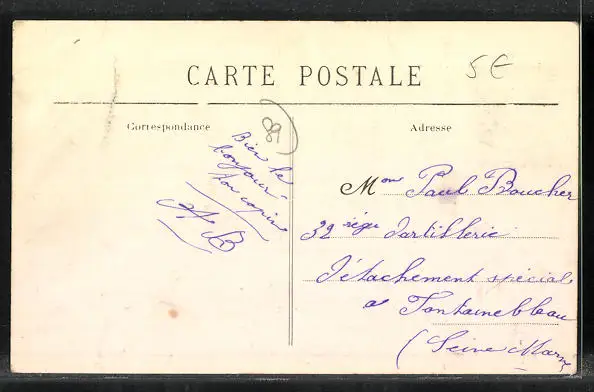 CARTE POSTALE
5€
Correspondance
89
Bien le
bonjour
ton copain
AB
Adresse
Mon Paul Boucher
32 régi d'artillerie
Détachement spécial
a Fontainebleau
(Seine Marne